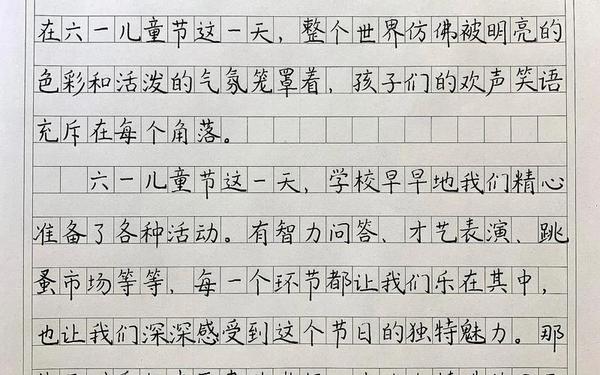 在六一儿童节这一天，整个世界仿佛被明亮的
色彩和活泼的气氛笼罩着，孩子们的欢声笑语
充斥在每个角落。
六一儿童节这一天，学校早早地我们精心
准备了各种活动。有智力问答、才艺表演、跳
蚤市场等等，每一个环节都让我们乐在其中，
也让我们深深感受到这个节日的独特魅力。那